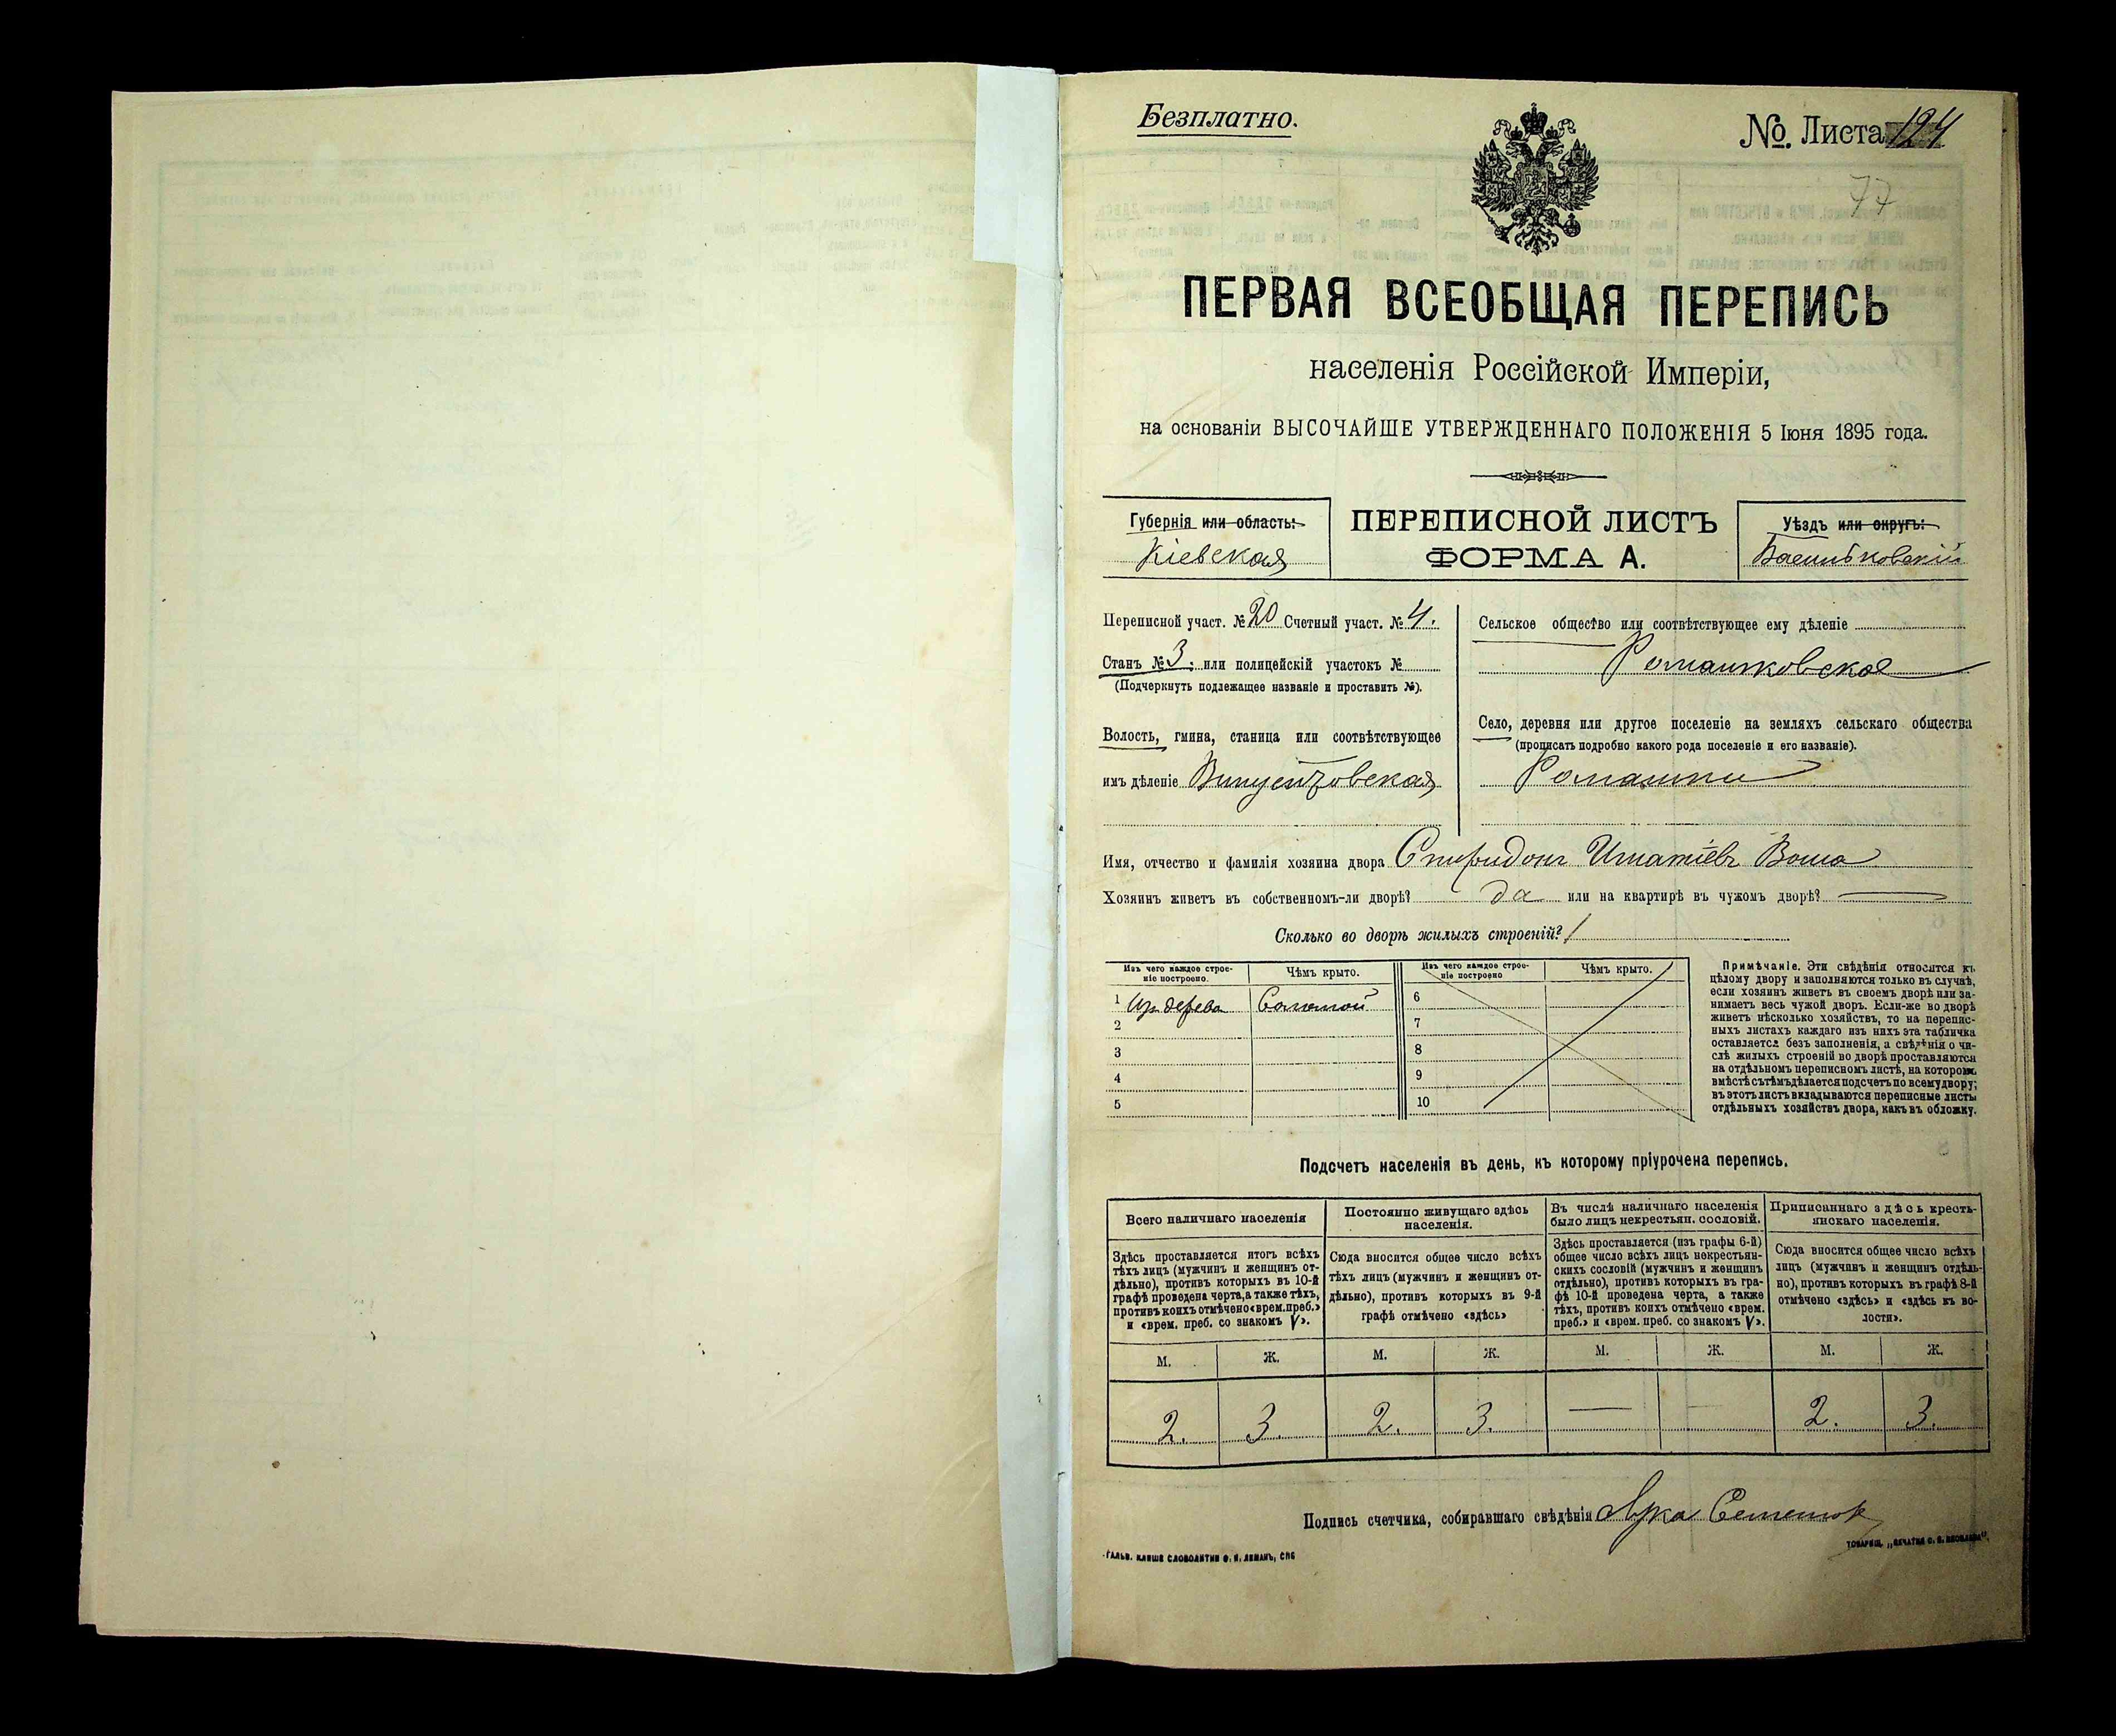 Безплатно.
№. Листа 124
77
ПЕРВАЯ ВСЕОБЩАЯ ПЕРЕПИСЬ
населенія Россійской Имперіи,
на основаніи ВЫСОЧАЙШЕ УТВЕРЖДЕННАГО ПОЛОЖЕНІЯ 5 Іюня 1895 года.
Губернія или область:
Кіевская
ПЕРЕПИСНОЙ ЛИСТЪ
ФОРМА А.
Уѣздъ или округъ:
Васильковскій
Переписной участ. № 20 Счетный участ. № 4.
Станъ № 3; или полицейскій участокъ №
(Подчеркнуть подлежащее названіе и проставить №).
Волость, гмина, станица или соотвѣтствующее
имъ дѣленіе Винцентовская
Сельское общество или соотвѣтствующее ему дѣленіе
Ромашковское
Село, деревня или другое поселеніе на земляхъ сельскаго общества
(прописать подробно какого рода поселеніе и его названіе).
Ромашки
Имя, отчество и фамилія хозяина двора Спиридонъ Игнатіевъ
Хозяинъ живетъ въ собственномъ-ли дворѣ? да или на квартирѣ въ чужомъ дворѣ?
Сколько во дворѣ жилыхъ строеній? 1
Изъ чего каждое строе-
ніе построено.
Чѣмъ крыто.
Изъ чего каждое строе-
ніе построено
Чѣмъ крыто.
1 Изъ дерева Соломой 6
2 7
3 8
4 9
5 10
Примѣчаніе. Эти свѣдѣнія относятся къ
цѣлому двору и заполняются только въ случаѣ,
если хозяинъ живетъ въ своемъ дворѣ или за-
нимаетъ весь чужой дворъ. Если-же во дворѣ
живетъ нѣсколько хозяйствъ, то на перепис-
ныхъ листахъ каждаго изъ нихъ эта табличка
оставляется безъ заполненія, а свѣдѣнія о чи-
слѣ жилыхъ строеній во дворѣ проставляются
на отдѣльномъ переписномъ листѣ, на которомъ
вмѣстѣ съ тѣмъ дѣлается подсчетъ по всему двору;
въ этотъ листъ вкладываются переписные листы
отдѣльныхъ хозяйствъ двора, какъ въ обложку.
Подсчетъ населенія въ день, къ которому пріурочена перепись.
Всего наличнаго населенія
Здѣсь проставляется итогъ всѣхъ
тѣхъ лицъ (мужчинъ и женщинъ от-
дѣльно), противъ которыхъ въ 10-й
графѣ проведена черта, а также тѣхъ,
противъ коихъ отмѣчено «врем. преб.»
и «врем. преб. со знакомъ V».
Постоянно живущаго здѣсь
населенія.
Сюда вносится общее число всѣхъ
тѣхъ лицъ (мужчинъ и женщинъ от-
дѣльно), противъ которыхъ въ 9-й
графѣ отмѣчено «здѣсь»
Въ числѣ наличнаго населенія
было лицъ некрестьян. сословій.
Здѣсь проставляется (изъ графы 6-й)
общее число всѣхъ лицъ некрестьян-
скихъ сословій (мужчинъ и женщинъ
отдѣльно), противъ которыхъ въ гра-
фѣ 10-й проведена черта, а также
тѣхъ, противъ коихъ отмѣчено «врем.
преб.» и «врем. преб. со знакомъ V».
Приписаннаго здѣсь кресть-
янскаго населенія.
Сюда вносится общее число всѣхъ
лицъ (мужчинъ и женщинъ отдѣль-
но), противъ которыхъ въ графѣ 8-й
отмѣчено «здѣсь» и «здѣсь въ во-
лости».
М. Ж. М. Ж. М. Ж. М. Ж.
2. 3. 2. 3. — — 2. 3.
Подпись счетчика, собиравшаго свѣдѣнія
ГАЛЬВ. КЛИШЕ СЛОВОЛИТНИ О. И. ЛЕМАНЪ, СПБ
ТОВАРИЩ. „ПЕЧАТНЯ С. П. ЯКОВЛЕВА“.